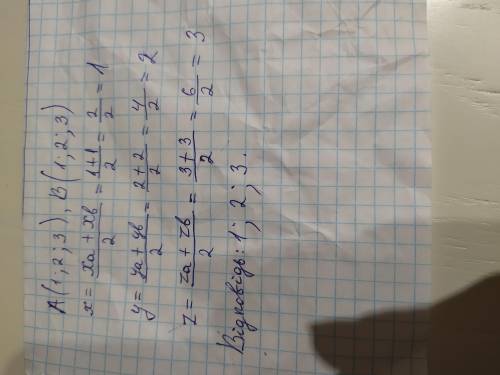 A(1; 2; 3), B(1; 2; 3)
x = (xa + xb)/2 = (1+1)/2 = 2/2 = 1
y = (ya + yb)/2 = (2+2)/2 = 4/2 = 2
z = (za + zb)/2 = (3+3)/2 = 6/2 = 3
Відповідь: 1; 2; 3.